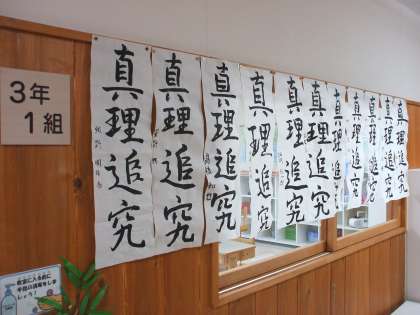 3年
1組
真理追究
真理追究
真理追究
真理追究
真理追究
真理追究
真理追究
真理追究
真理追究
真理追究
真理追究